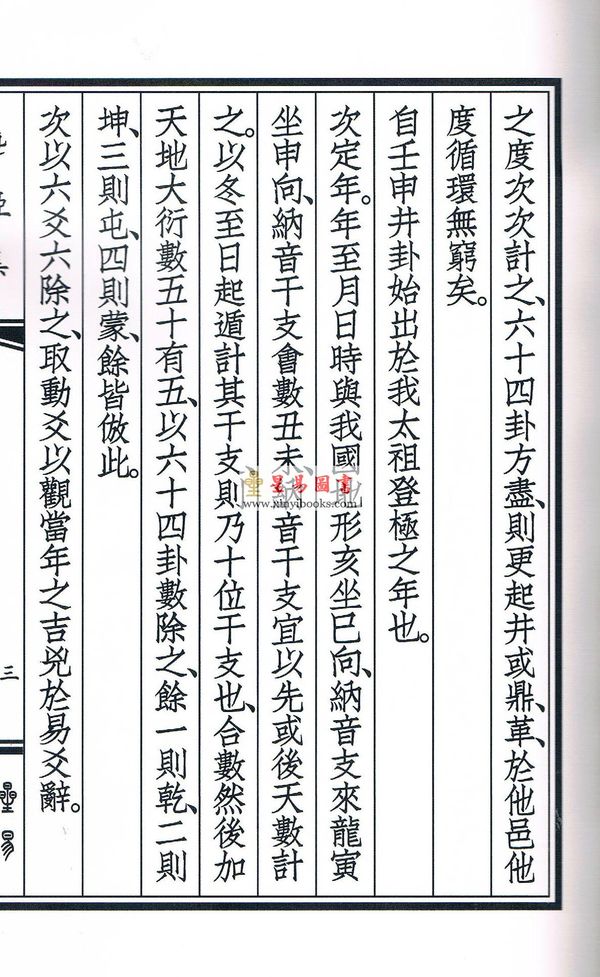 之度次次計之、六十四卦方盡、則更起井或鼎、革、於他邑他
度循環無窮矣。
自壬申井卦始出於我太祖登極之年也。
次定年。年至月日時與我國地形亥坐巳向、納音支來龍寅
坐申向、納音干支會數丑未音干支宜以先或後天數計
之。以冬至日起遁計其干支則乃十位干支也、合數然後加
天地大衍數五十有五、以六十四卦數除之、餘一則乾、二則
坤、三則屯、四則蒙、餘皆倣此。
次以六爻六除之、取動爻以觀當年之吉兇於易爻辭。
三
星易
星易圖書
www.xinyibooks.com